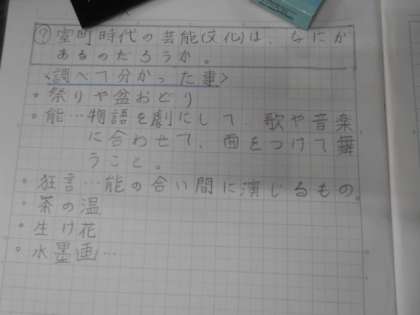 ⑦室町時代の芸能(文化)は、なにが
あるのだろうか。
<調べて分かった事>
・祭りや盆おどり
・能…物語を劇にして、歌や音楽
に合わせて、面をつけて舞
うこと。
・狂言…能の合い間に演じるもの。
・茶の湯
・生け花
・水墨画…